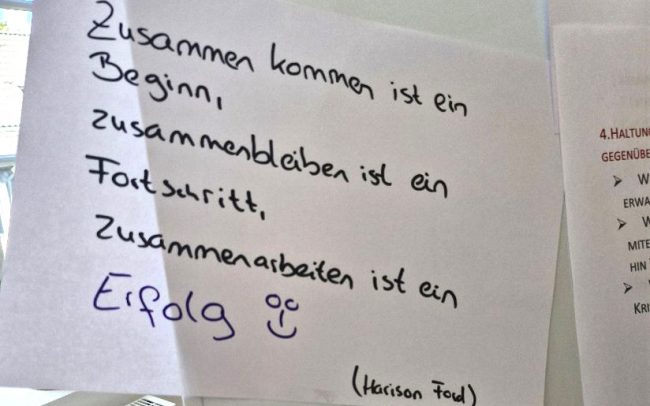 Zusammen kommen ist ein
Beginn,
zusammenbleiben ist ein
Fortschritt,
Zusammenarbeiten ist ein
Erfolg
(Harison Ford)
4.HALTUNG
GEGENÜBE
W
ERWA
W
MITE
HIN
KRI